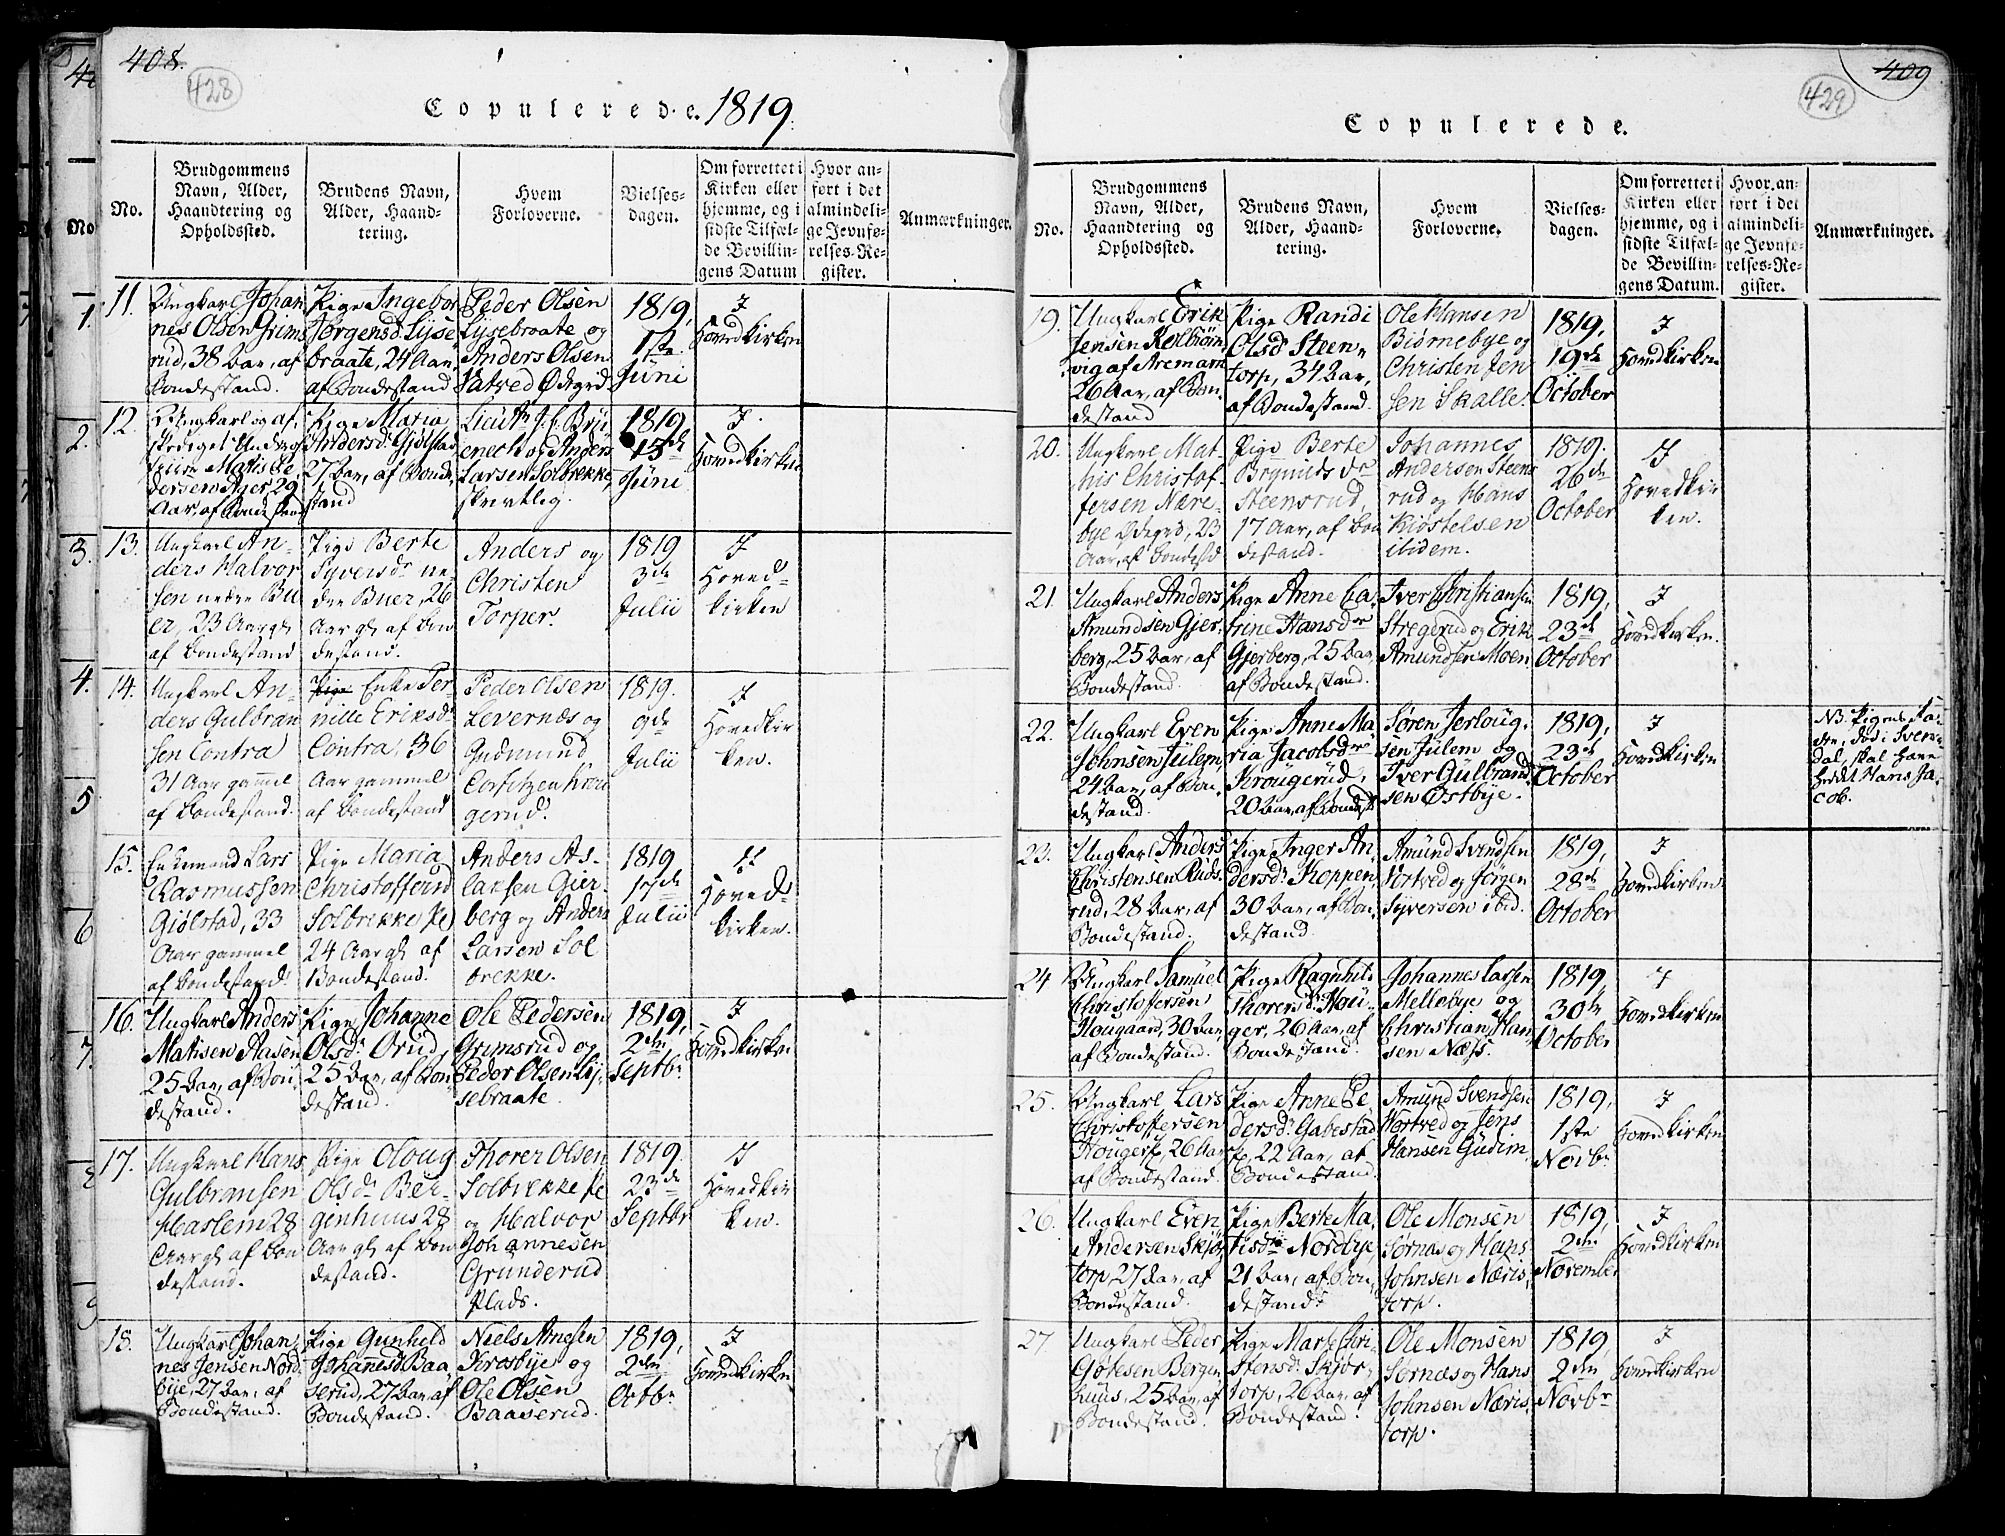 408.
428
Copulerede. 1819.
No.
Brudgommens
Navn, Alder,
Haandtering og
Opholdssted.
Brudens Navn,
Alder, Haand-
tering.
Hvem
Forloverne.
Vielses-
dagen.
Om forrettet i
Kirken eller
hjemme, og i
sidste Tilfæl-
de Bevillin-
gens Datum
Hvor an-
ført i det
almindeli-
ge Jevnfø-
relses-Re-
gister.
Anmærkninger.
11.
Ungkarl Johan
nes Olsen Grims
rud, 38 Aar, af
Bondestand.
Pige Ingebor
Jørgensd. Lyse
braate, 24 Aar,
af Bondestand
Peder Olsen
Lysebraate og
Anders Olsen
Vatved Ødegrd
1819,
1ste
Juni
I
Hovedkirken
12.
Ungkarl og af,
skediget Under of
Matis Pe
dersen Ager 29
Aar, af Bondestand
Pige Maria
Andersd. Gjølstad
27 Aar, af Bonde
stand
Lieutn. J. C. Brü
nech og Anders
Larsen Solbrekke,
skrivtlig.
1819
15de
Juni
I
Hovedkirken
13.
Ungkarl An-
ders Halvor
sen nedre Bu
er, 23 Aar gl
af Bondestand
Pige Berte
Syversdr ne-
dre Buer, 26
Aar gl af Bon
destand.
Anders og
Christen
Torper.
1819
3de
Julii
I
Hoved-
kirken
14.
Ungkarl An-
ders Gulbran
sen Contra
31 Aar gammel
af Bondestand.
Pige Enke Per-
nille Eriksdr
Contra, 36
Aar gammel
af Bondestand
Peder Olsen
Levernæs og
Gudmund
Corfitzen Krou
gerud.
1819.
9de
Julii
I
Hovedkir
ken.
15.
Enkemand Lars
Rasmussen
Giølstad, 33
Aar gammel
af Bondestand.
Pige Maria
Christoffersd
Solbrekke Pe
24 Aar gl af
Bondestand.
Anders As-
laksen Gjer-
berg og Anders
Larsen Sol
brekke.
1819
17de
Julii
I
Hoved-
kirken.
16.
Ungkarl Anders
Matisen Aasen
25 Aar, af Bon-
destand.
Pige Johanne
Olsd. Orud
25 Aar, af Bon
destand.
Ole Pedersen
Grimsrud og
Peder Olsen Ly-
sebraate.
1819,
2den
Septbr
I
Hovedkirken
17.
Ungkarl Hans
Gulbransen
Haslem 28
Aar gl af Bon
destand.
Pige Oloug
Olsdr Ber-
genhuus 28
Aar gl af Bon
destand.
Thorer Olsen
Solbrekke Pe
og Halvor
Johannesen
Grunderud
Plads.
1819.
23de
Septbr
I
Hovedkir
ken.
18.
Ungkarl Johan
nes Jensen Nord-
bye, 27 Aar, af
Bondestand.
Pige Gunhild
Johannesd. Baa
serud, 27 Aar, af
Bondestand.
Niels Arnesen
Krosbye og
Ole Olsen
Baaserud.
1819,
2den
Octbr
I
Hovedkirken
409
429
Copulerede.
No.
Brudgommens
Navn, Alder,
Haandtering og
Opholdssted.
Brudens Navn,
Alder, Haand-
tering.
Hvem
Forloverne.
Vielses-
dagen.
Om forrettet i
Kirken eller
hjemme, og i
sidste Tilfæl-
de Bevillin-
gens Datum.
Hvor an-
ført i det
almindeli-
ge Jevnfø-
relses-Re-
gister.
Anmærkninger.
19.
Ungkarl Erik
Jensen Kolbiørn
vig af Aremark
26 Aar, af Bon-
destand
Pige Randi
Olsdr Steen-
torp, 34 Aar,
af Bondestand.
Ole Hansen
Biørnebye og
Christen Jen
sen Skalle.
1819,
19de
October
I
Hovedkirken
20.
Ungkarl Mat-
his Christof-
fersen Nære-
bye Ødegrd, 23
Aar, af Bondestd
Pige Berte
Brynilds dr
Steensrud,
17 Aar, af Bon
destand.
Johannes
Anderson Steens
rud og Hans
Kidstelsen
ibidem.
1819.
26de
October
I
Hovedkir
ken.
21.
Ungkarl Anders
Amundsen Gjer
berg, 25 Aar, af
Bondestand.
Pige Anne Ca-
trine Hansdr
Gjerberg, 25 Aar,
af Bondestand.
Iver Christiansen
Stregerud og Erik
Amundsen Moen
1819,
23de
October
I
Hovedkirken.
22.
Ungkarl Even
Johnsen Julem,
24 Aar, af Bon-
destand.
Pige Anne Ma-
ria Jacobsdr
Krougerud,
20 Aar, af Bondest
Søren Jerloug-
sen Julem og
Iver Gulbrand
sen Østbye.
1819,
23de
October
I
Hovedkirken
NB. Pigens Fa-
der, død i
dal, skal have
heedt Hans Ja-
cob.
23.
Ungkarl Anders
Christensen Ruds-
rud, 28 Aar, af
Bondestand.
Pige Inger An-
dersd. Koppen,
30 Aar, af Bon-
destand.
Amund Svendsen
Hortved og Jørgen
Syversen ibid.
1819,
28de
October
I
Hovedkirken
24
Ungkarl Samuel
Christoffersen
Hougaard, 30 Aar,
af Bondestand.
Pige Ragnhild
Thorersd. Hou-
ger, 26 Aar, af
Bondestand.
Johannes Larsen
Mellebye og
Christian Han-
sen Næss.
1819,
30te
October
I
Hovedkirken
25.
Ungkarl Lars
Christoffersen
Houger, 26 Aar
af Bondestand.
Pige Anne Pe
dersd. Gabestad
, 22 Aar, af
Bondestand.
Amund Svendsen
Hortved og Jens
Hansen Gudim,
1819,
1ste
Novbr
I
Hovedkirken
26.
Ungkarl Even
Andersen Skjør
torp 27 Aar, af
Bondestand.
Pige Berte Ma-
tisdr Nordbye,
21 Aar, af Bon-
destand.
Ole Monsen
Sørnæs og Hans
Johnsen Næris-
torp.
1819,
2den
November
I
Hovedkirken
27
Ungkarl Peder
Gøtesen Bergen
huus, 25 Aar, af
Bondestand.
Pige Marte Chri-
stensd. Skjør-
torp, 26 Aar, af
Bondestand.
Ole Monsen
Sørnæs og Hans
Johnsen Næris-
torp.
1819,
2den
Novbr
I
Hovedkirken